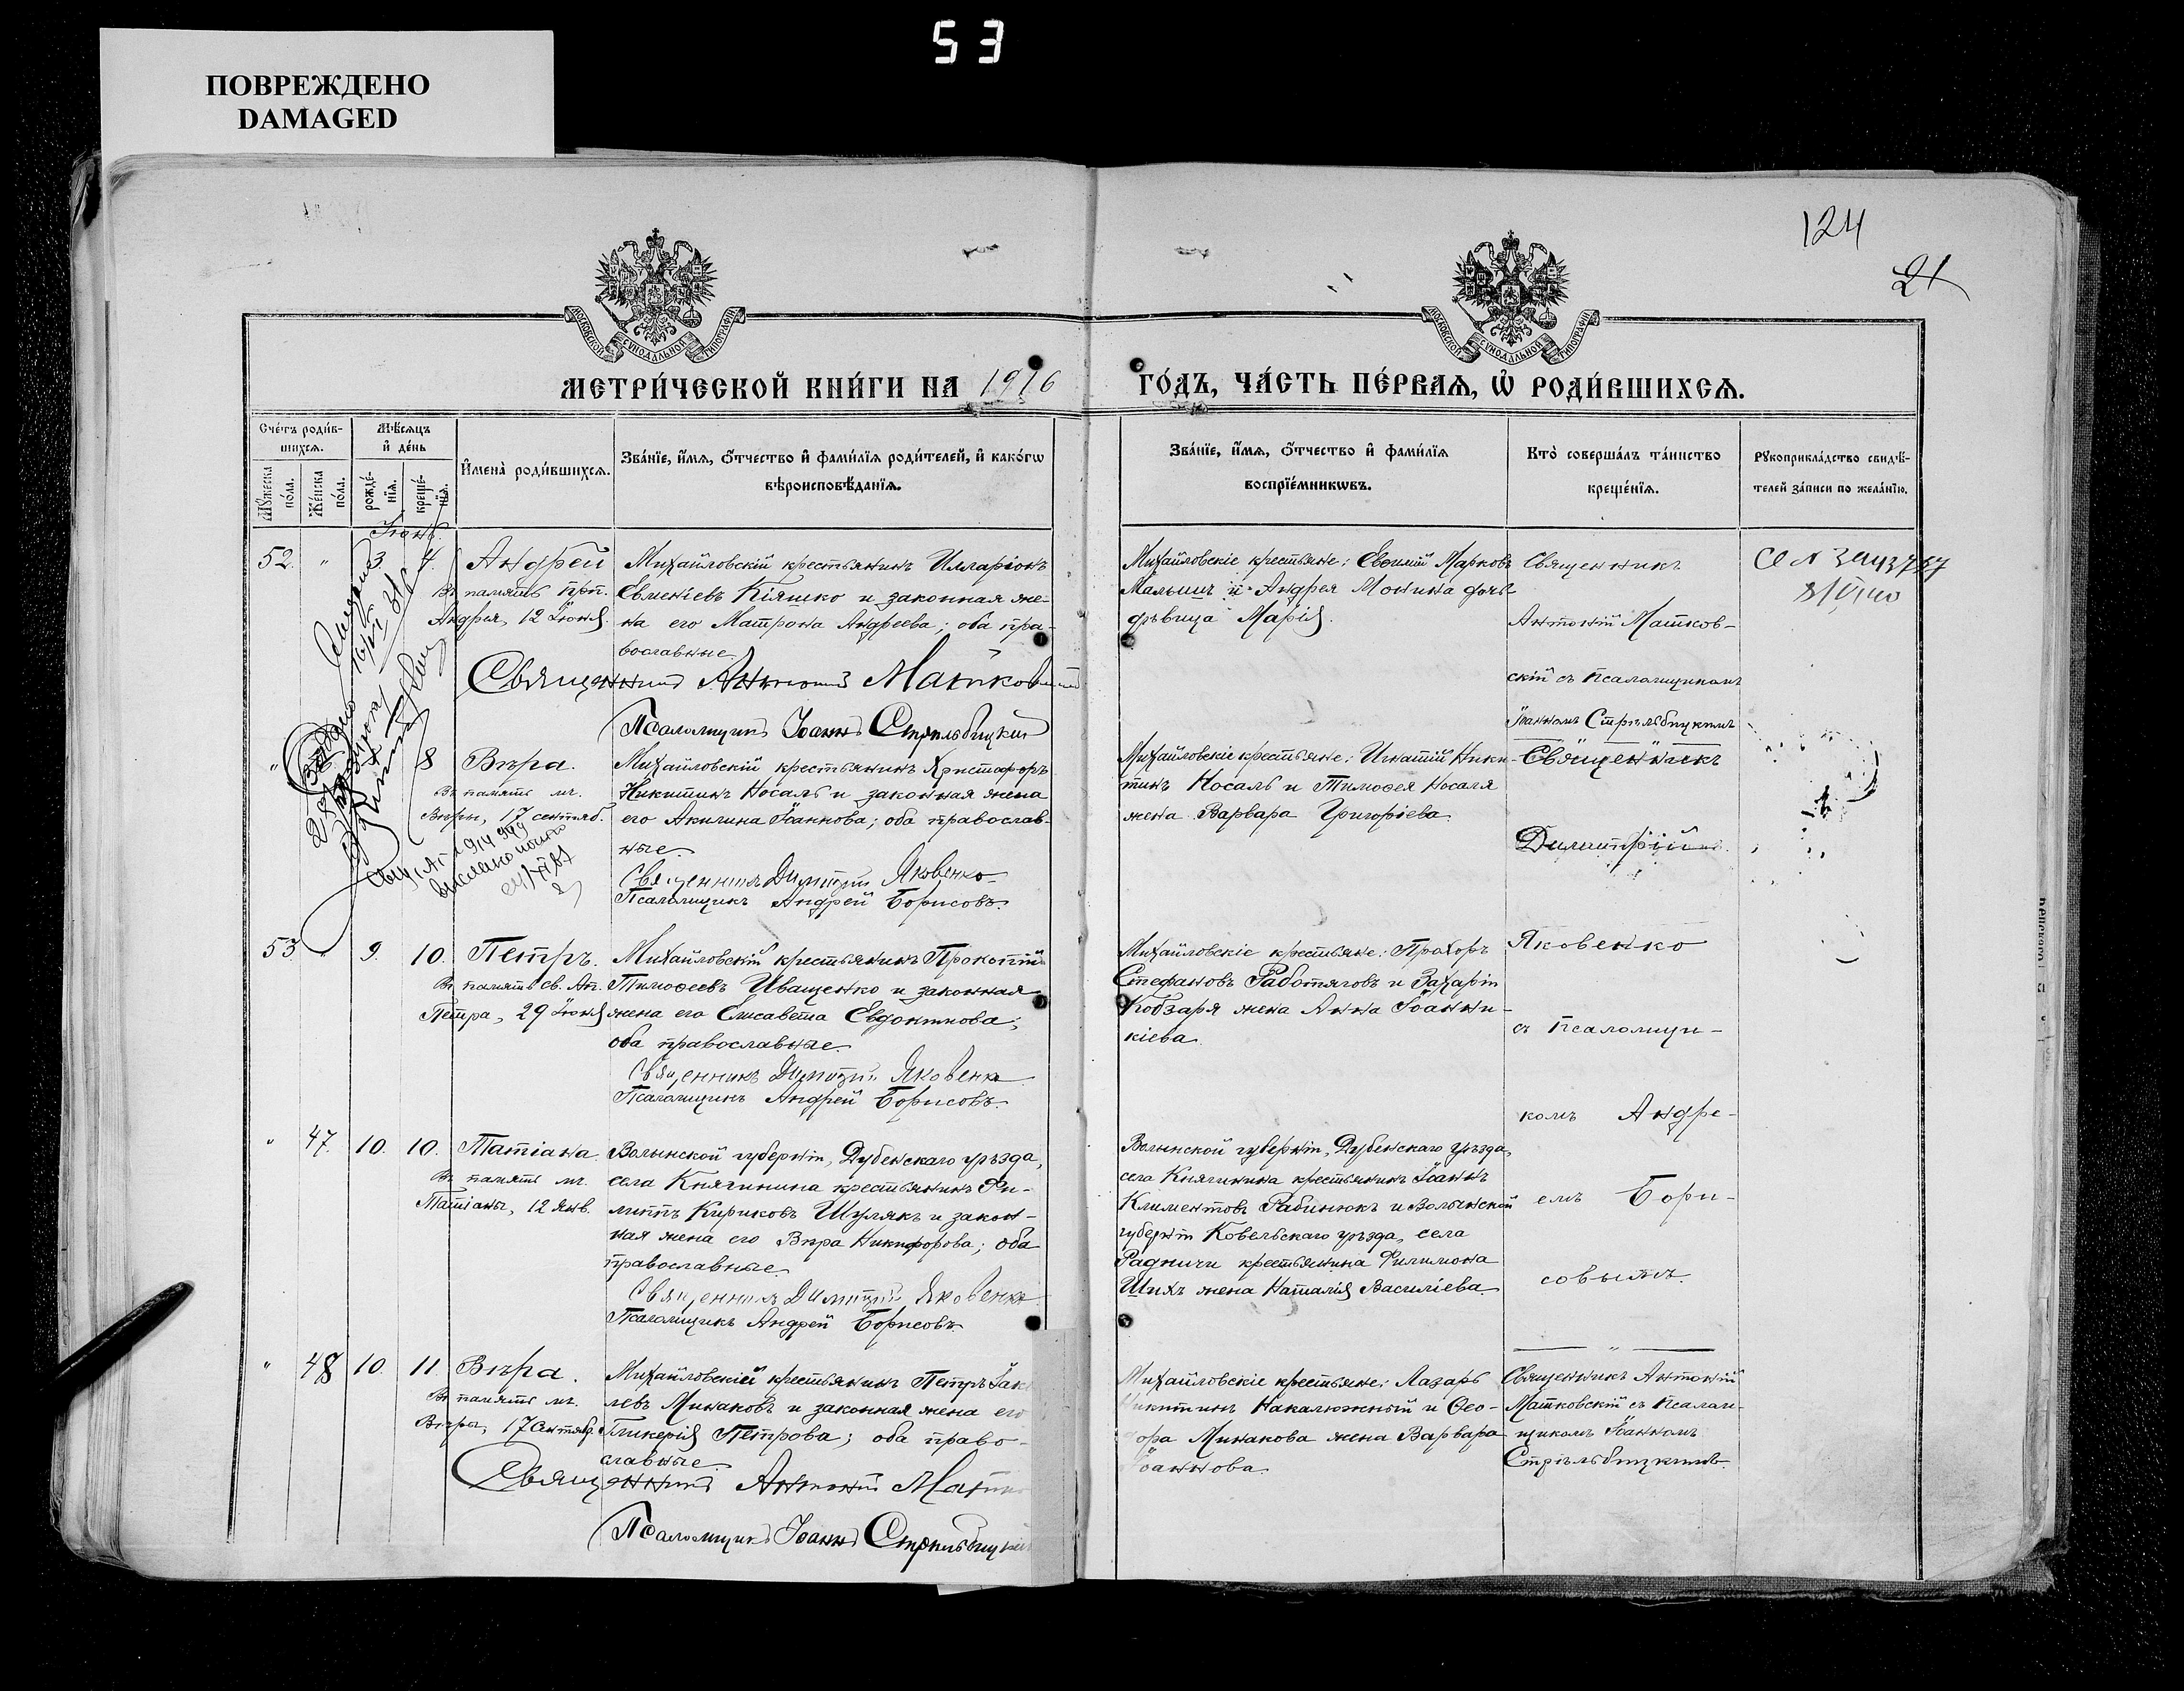 53
ПОВРЕЖДЕНО
DAMAGED
124
21
МОСКОВСКОЙ СУНОДАЛЬНОЙ ТИПОГРАФІИ
МОСКОВСКОЙ СУНОДАЛЬНОЙ ТИПОГРАФІИ
МЕТРИ́ЧЕСКОЙ КНИ́ГИ НА 1916 ГО́ДЪ, ЧА́СТЬ ПЕ́РВАѦ, Ѡ҆ РОДИ́ВШИХСѦ.
Сче́тъ роди́в-
шихсѧ.
Мꙋ́жеска
по́ла.
Же́нска
по́ла.
Мѣ́сѧцъ
и҆ де́нь
рожде́-
нїѧ.
креще́-
нїѧ.
И҆мена̀ роди́вшихсѧ.
Зва́нїе, и҆́мѧ, ѻ҆́тчество и҆ фами́лїѧ роди́телей, и҆ како́гѡ
вѣроисповѣ́данїѧ.
Зва́нїе, и҆́мѧ, ѻ҆́тчество и҆ фами́лїѧ
воспрїе́мникѡвъ.
Кто̀ соверша́лъ та́инство
креще́нїѧ.
Рꙋкоприкла́дство свидѣ́-
телей за́писи по жела́нїю.
Іюнь.
52. " 3. 4. Андрей
Въ память прп.
Андрея, 12 Іюня.
Михайловскій крестьянинъ Иларіонъ
Евменіевъ Кіяшко и законная же-
на его Матрона Андреева; оба пра-
вославные.
Священникъ Антоній Матковскій
Псаломщикъ Іоаннъ Стрѣльбицкій
Михайловскіе крестьяне: Евѳимій Марковъ
Малышъ и Андрея Монина дочь
дѣвица Марія.
Священникъ
Антоній Матков-
скій съ псаломщикомъ
Іоанномъ Стрѣльбицкимъ
" 8 Вѣра.
Въ память мч.
Вѣры, 17 сентяб.
Михайловскій крестьянинъ Христофоръ
Никитинъ Носаль и законная жена
его Акилина Іоаннова; оба православ-
ные.
Священникъ Димитрій Яковенко
Псаломщикъ Андрей Борисовъ.
Михайловскіе крестьяне: Игнатій Ники-
тинъ Носаль и Тимоѳея Носаля
жена Варвара Григоріева.
Священникъ
Димитрій
53 " 9. 10. Петръ.
Въ память св. Ап.
Петра, 29 Іюня
Михайловскій крестьянинъ Прокопій
Тимоѳеевъ Иващенко и законная
жена его Елисавета Евдокимова;
оба православные.
Священникъ Димитрій Яковенко
Псаломщикъ Андрей Борисовъ.
Михайловскіе крестьяне: Прохоръ
Стефановъ Работяговъ и Захарія
Кобзаря жена Анна Іоанни-
кіева.
Яковенко
съ псаломщи-
" 47. 10. 10. Татіана.
Въ память мч.
Татіаны, 12 янв.
Волынской губерніи, Дубенскаго уѣзда,
села Княгинина крестьянинъ Фи-
липпъ Кириковъ Шулякъ и закон-
ная жена его Вѣра Никифорова; оба
православные.
Священникъ Димитрій Яковенко
Псаломщикъ Андрей Борисовъ.
Волынской губерніи, Дубенскаго уѣзда,
села Княгинина крестьянинъ Іоаннъ
Климентовъ Рабинюкъ и Волынской
губерніи Ковельскаго уѣзда, села
крестьянина Филимона
жена Наталія Василіева.
комъ Андре-
емъ Бори-
совымъ.
" 48 10. 11. Вѣра.
Въ память мч.
Вѣры, 17 Сентяб.
Михайловскій крестьянинъ Петръ
Минаковъ и законная жена его
Гликерія Петрова; оба право-
славные.
Священникъ Антоній
Псаломщикъ Іоаннъ Стрѣльбицкій
Михайловскіе крестьяне: Лазарь
Никитинъ Накалюжный и Ѳео-
дора Минакова жена Варвара
Іоаннова.
Священникъ Антоній
Матковскій съ псалом-
щикомъ Іоанномъ
Стрѣльбицкимъ.